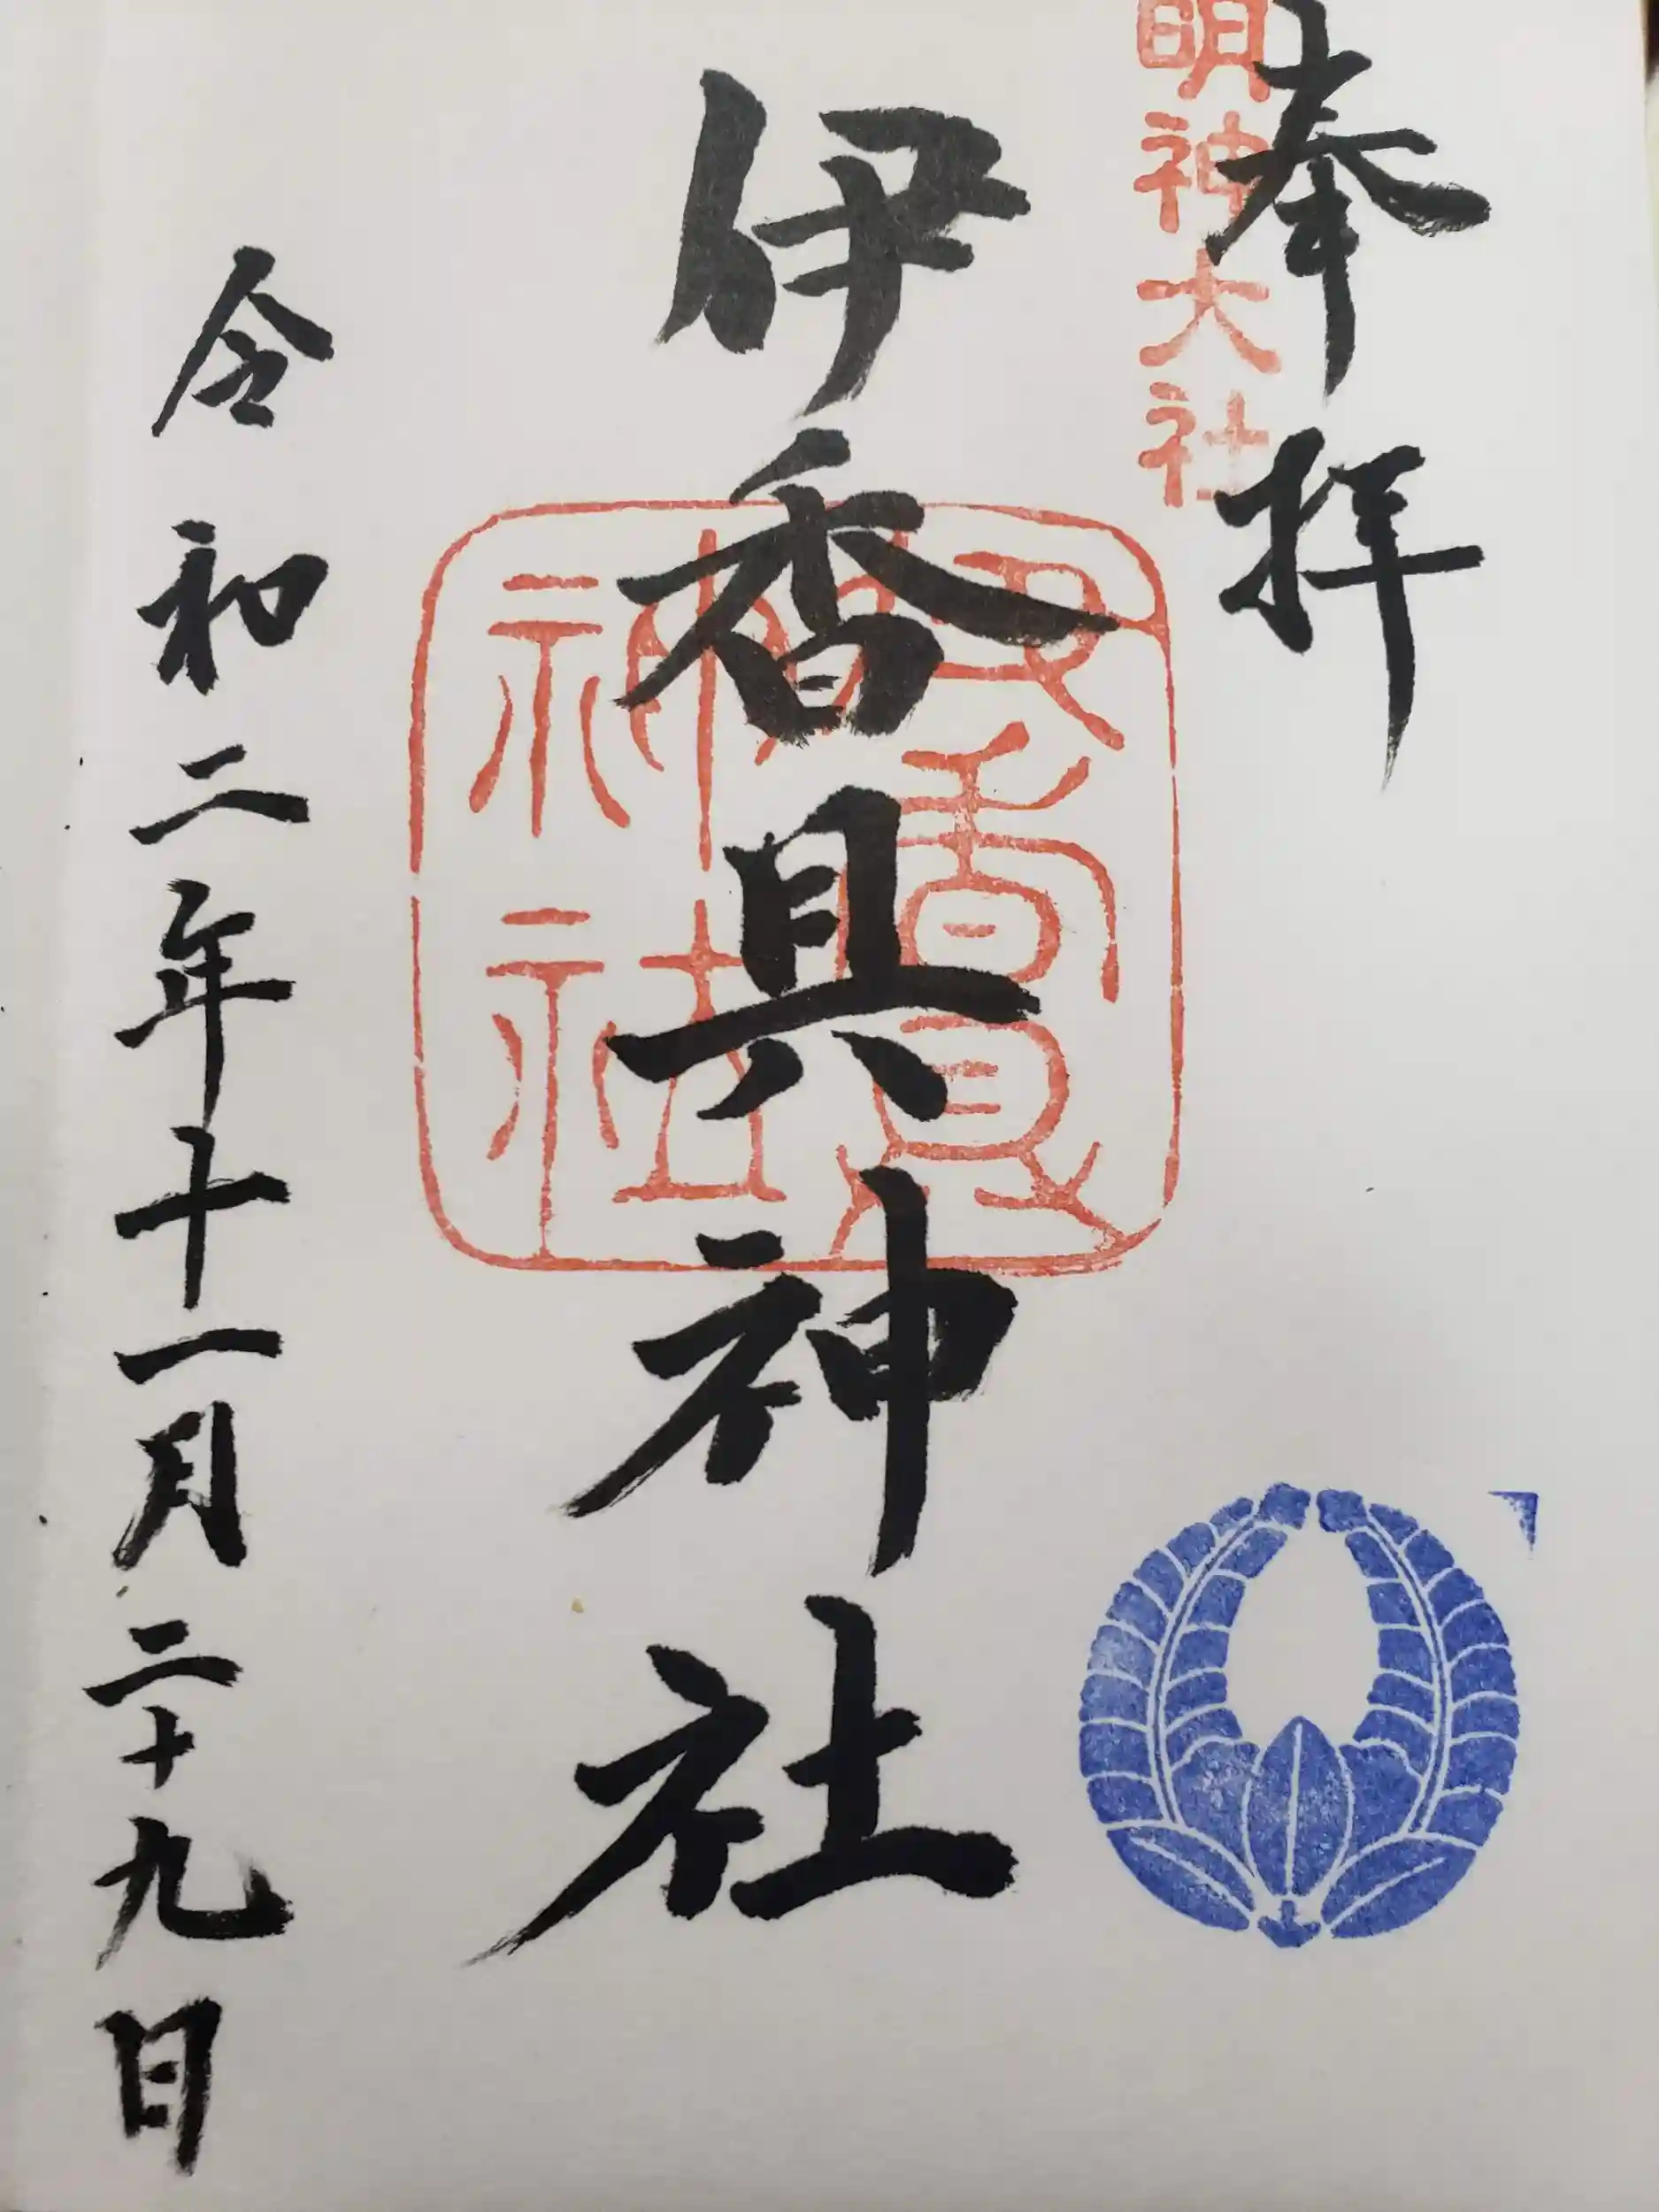 奉拝
明神大社
伊香具神社
令和二年十一月二十九日